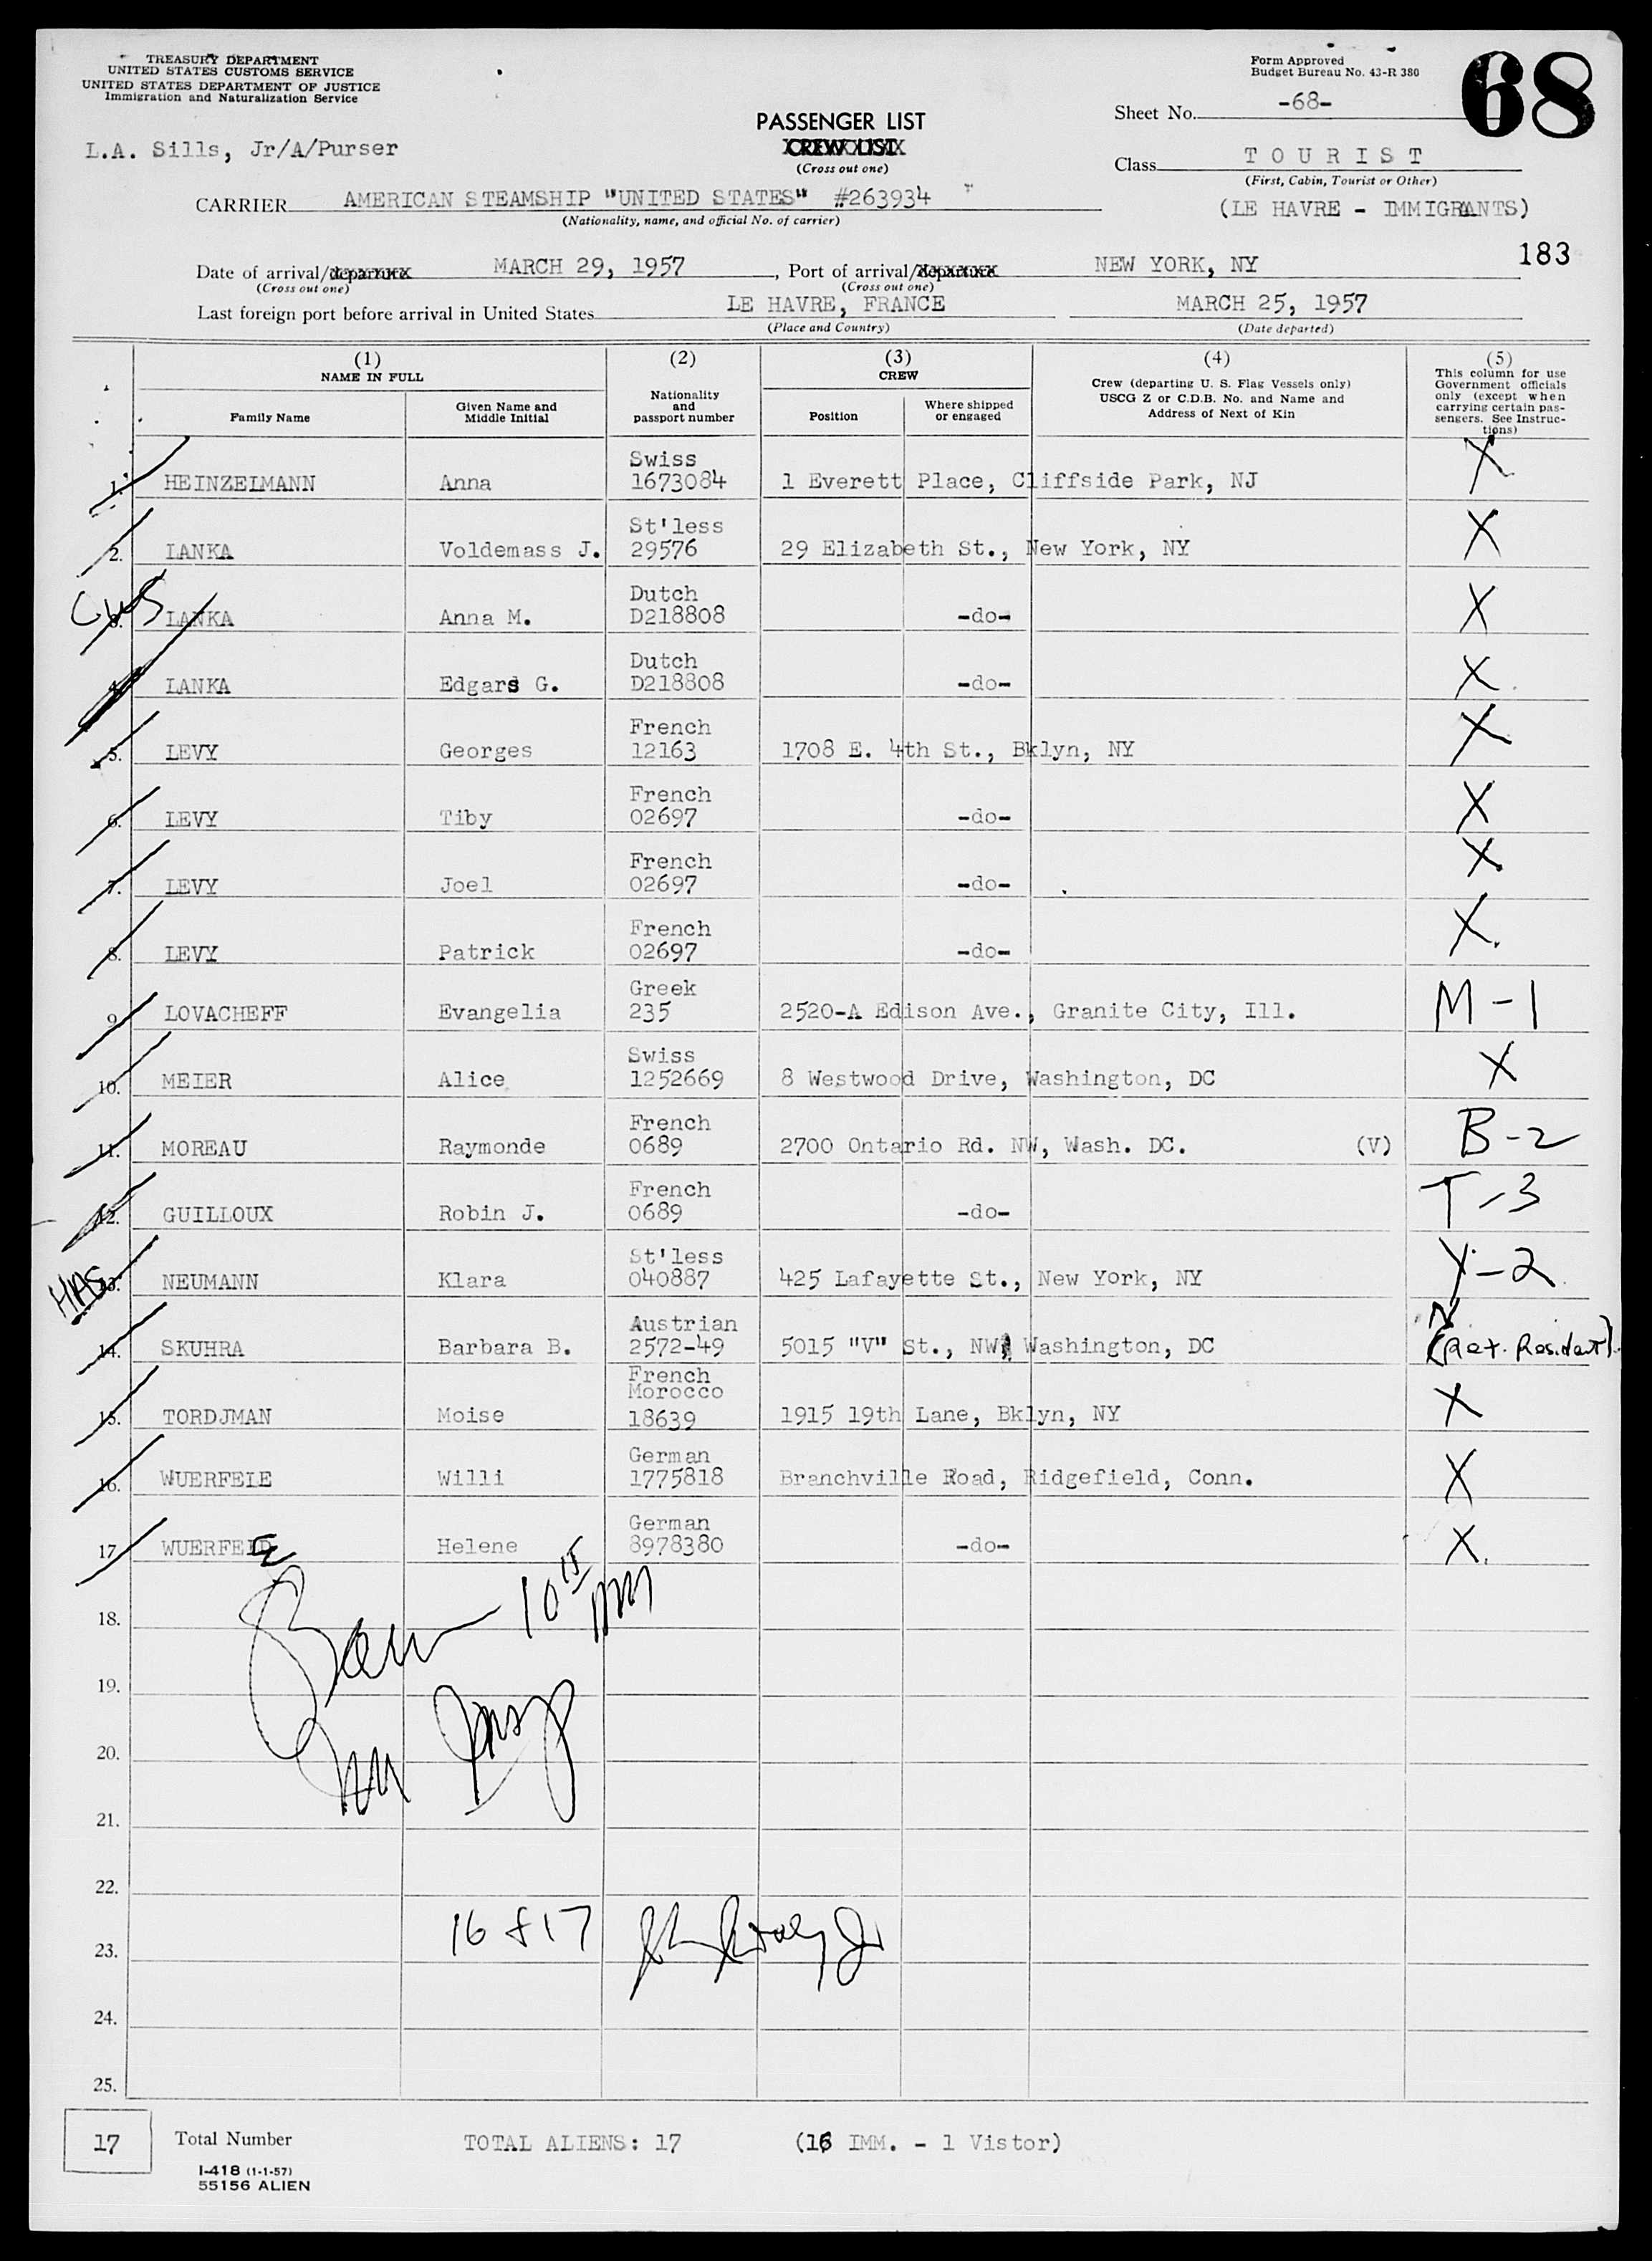 TREASURY DEPARTMENT
UNITED STATES CUSTOMS SERVICE
UNITED STATES DEPARTMENT OF JUSTICE
Immigration and Naturalization Service
Form Approved
Budget Bureau No. 43-R 380
68
Sheet No. -68-
L.A. Sills, Jr/A/Purser
PASSENGER LIST
CREW LIST
(Cross out one)
Class TOURIST
(First, Cabin, Tourist or Other)
CARRIER AMERICAN STEAMSHIP "UNITED STATES" #263934
(Nationality, name, and official No. of carrier)
(LE HAVRE - IMMIGRANTS)
183
Date of arrival/departure MARCH 29, 1957, Port of arrival/departure NEW YORK, NY
(Cross out one) (Cross out one)
Last foreign port before arrival in United States LE HAVRE, FRANCE MARCH 25, 1957
(Place and Country) (Date departed)
(1) NAME IN FULL
Family Name
Given Name and Middle Initial
(2) Nationality and passport number
(3) CREW
Position
Where shipped or engaged
(4) Crew (departing U. S. Flag Vessels only) USCG Z or C.D.B. No. and Name and Address of Next of Kin
(5) This column for use Government officials only (except when carrying certain passengers. See Instructions)
1. HEINZELMANN Anna Swiss 1673084 1 Everett Place, Cliffside Park, NJ X
2. LANKA Voldemass J. St'less 29576 29 Elizabeth St., New York, NY X
CWS
3. LANKA Anna M. Dutch D218808 -do- X
4. LANKA Edgars G. Dutch D218808 -do- X
5. LEVY Georges French 12163 1708 E. 4th St., Bklyn, NY X
6. LEVY Tiby French 02697 -do- X
7. LEVY Joel French 02697 -do- X
8. LEVY Patrick French 02697 -do- X
9. LOVACHEFF Evangelia Greek 235 2520-A Edison Ave., Granite City, Ill. M-1
10. MEIER Alice Swiss 1252669 8 Westwood Drive, Washington, DC X
11. MOREAU Raymonde French 0689 2700 Ontario Rd. NW, Wash. DC. (V) B-2
12. GUILLOUX Robin J. French 0689 -do- T-3
HIAS
13. NEUMANN Klara St'less 040887 425 Lafayette St., New York, NY Y-2
14. SKUHRA Barbara B. Austrian 2572-49 5015 "V" St., NW, Washington, DC N (Ret. Resident)
15. TORDJMAN Moise French Morocco 18639 1915 19th Lane, Bklyn, NY X
16. WUERFELE Willi German 1775818 Branchville Road, Ridgefield, Conn. X
17. WUERFELE Helene German 8978380 -do- X
10 15
18.
19.
20.
21.
22.
16 & 17
23.
24.
25.
17 Total Number TOTAL ALIENS: 17 (16 IMM. - 1 Vistor)
I-418 (1-1-57)
55156 ALIEN